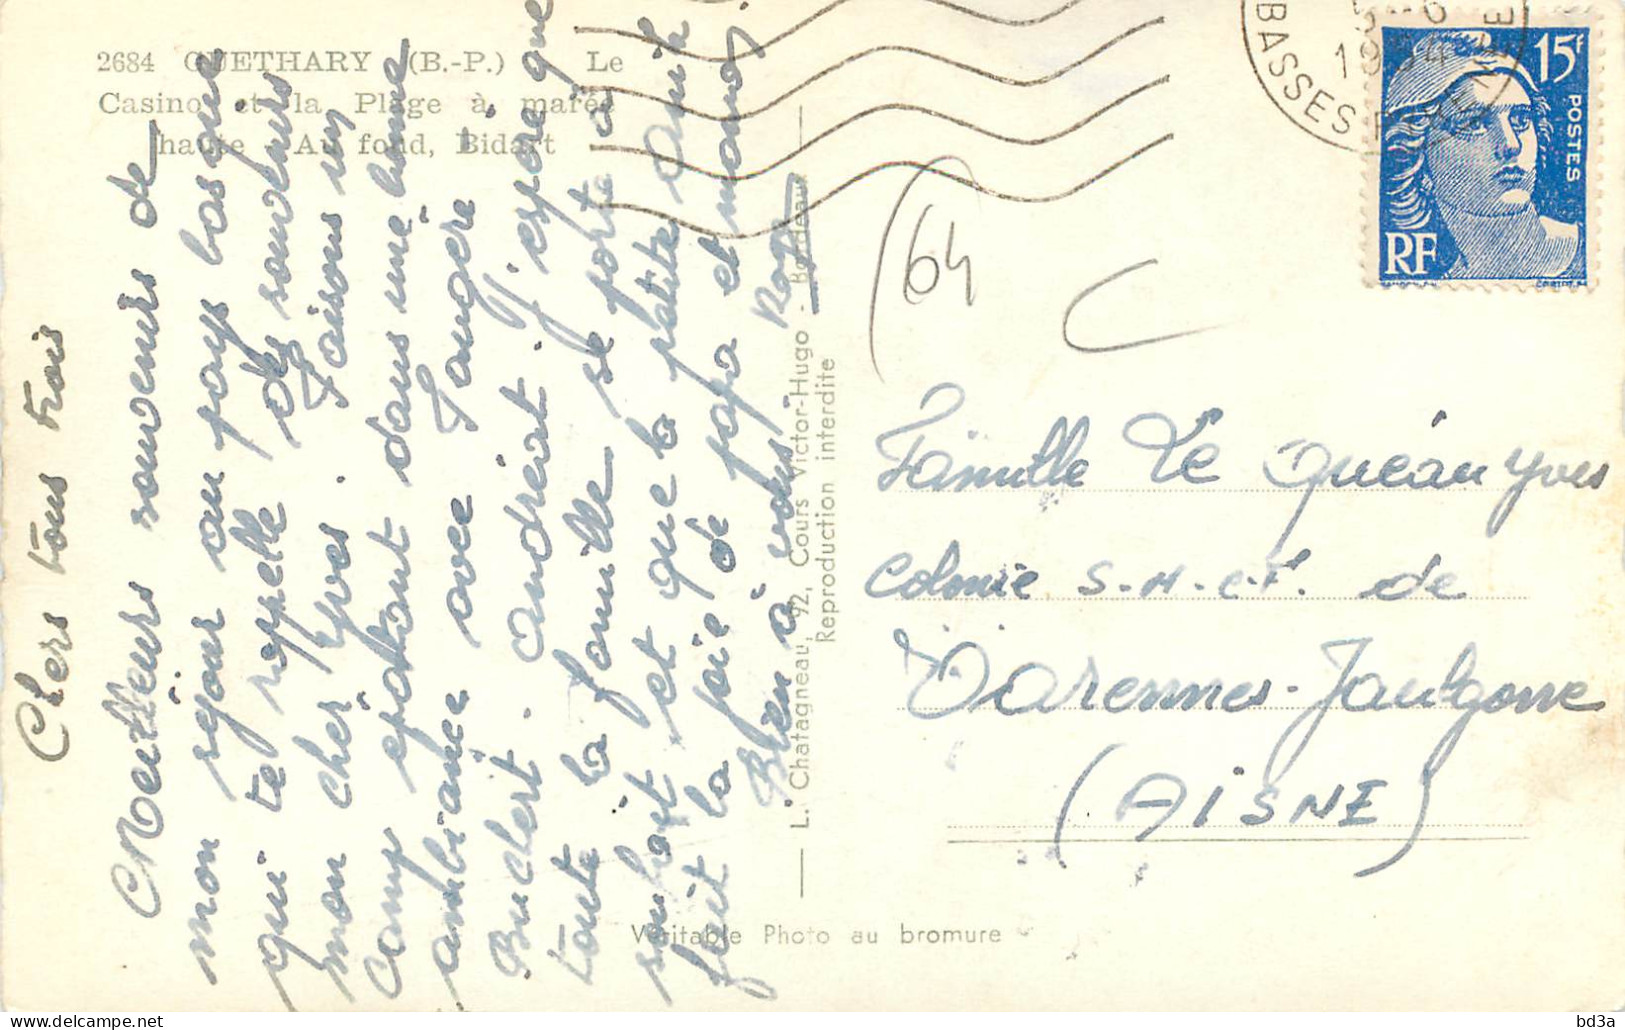 2684 GUETHARY (B.-P.) Le
Casino et la Plage à marée
haute Au fond, Bidart
Chers tous trois
Meilleurs souvenirs de
mon séjour au pays basque
qui te rappelle des souvenirs
mon cher Yves. Faisons un
camp épatant dans une bonne
ambiance avec Tangère
Buclert. Andréat. J'espère que
toute la famille se porte à
souhait et que la petite Annik
fait la joie de papa et maman
Bien à vous
L. Chatagneau, 92, Cours Victor-Hugo - Bordeaux
Reproduction interdite
Véritable Photo au bromure
(64
BASSES P
1954
15F
POSTES
RF
Famille Le Quéau Yves
Colonie S.N.C.F. de
Varennes-Jaulgonne
(AISNE)
bd3a